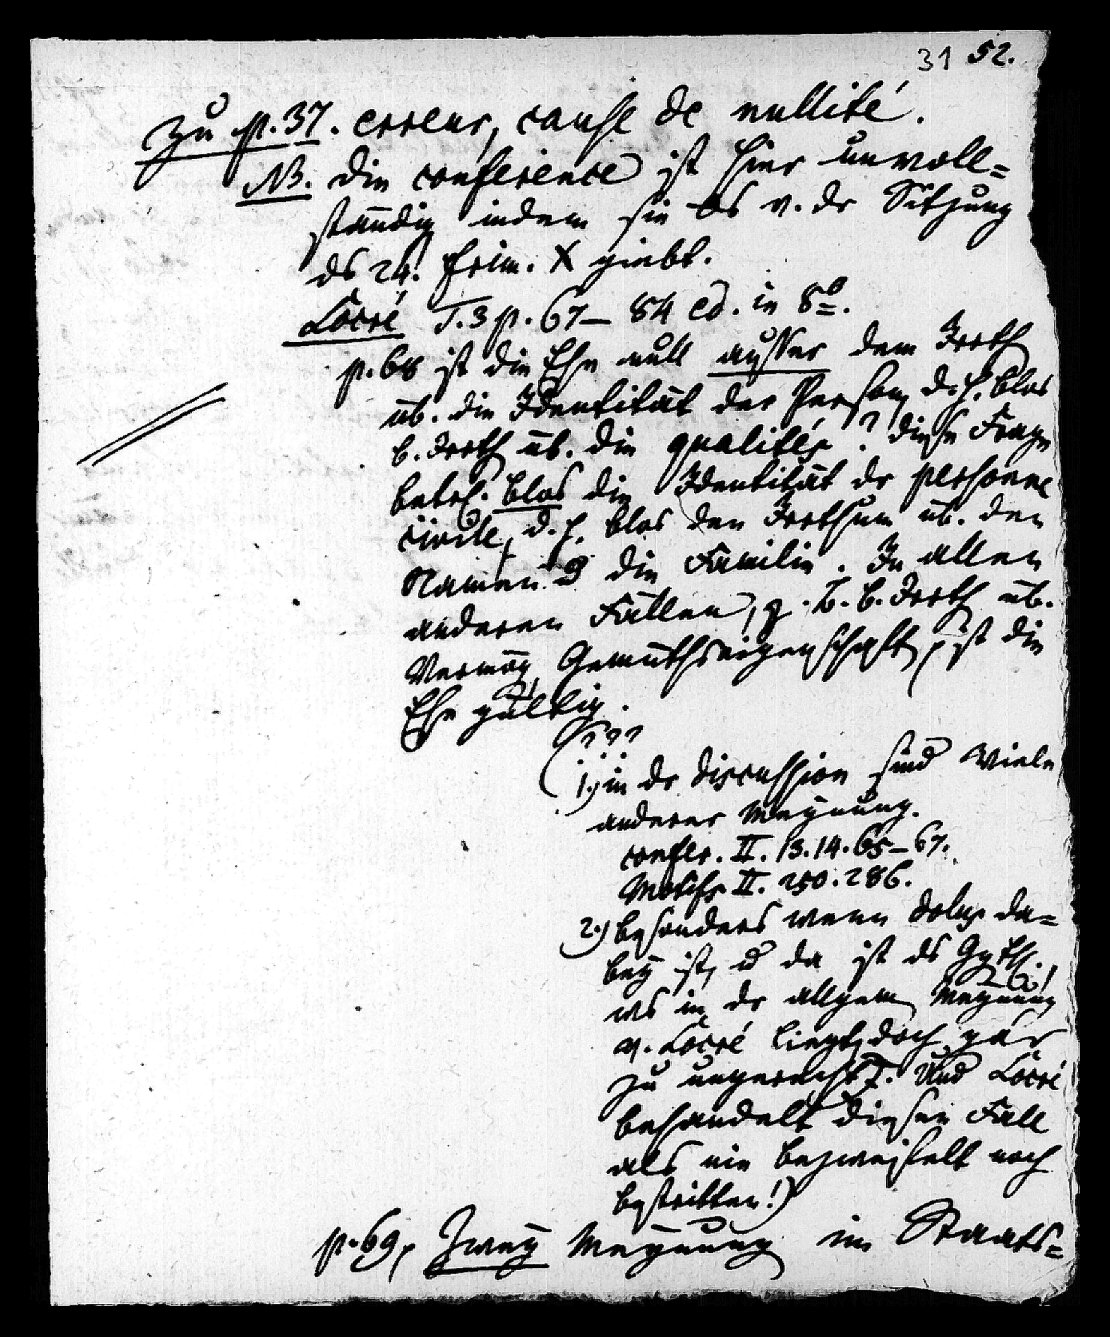 31 52.
Zu p. 37. erreur, cause de nullité.
NB. die conference ist hier unvoll=
ständig indem sie bs v. dr Sitzung
ds 24. frim. X giebt.
Locré T. 3 p. 67 – 84 ed. in 8º.
p. 68 ist die Ehe null ausser dem Irrth
üb. die Identität der Person, d. h. blos
b. Irrth üb. die qualités? diese Frage
betrf. blos die Identität dr personne
civile, d. h. blos den Irrthum üb. den
Namen u die Familie. In allen
anderen Fällen, z. B. b. Irrth üb.
Vermög, Gemüthseigenschaft, ist die
Ehe gültig.
(???
1.) in dr discussion sind viele
anderer Meynung.
confer. II. 13. 14. 65–67.
Motifs II. 250. 286.
2.) besonders wenn dolus da=
bey ist, u da ist ds Ggth.
ws in dr allgem Meynung
v. Locré liegt, doch gar
zu ungerecht. Und Locré
behandelt diesen Fall
als nie bezweifelt noch
bestritten!)
p. 69, Zwey Meynung im Staats=